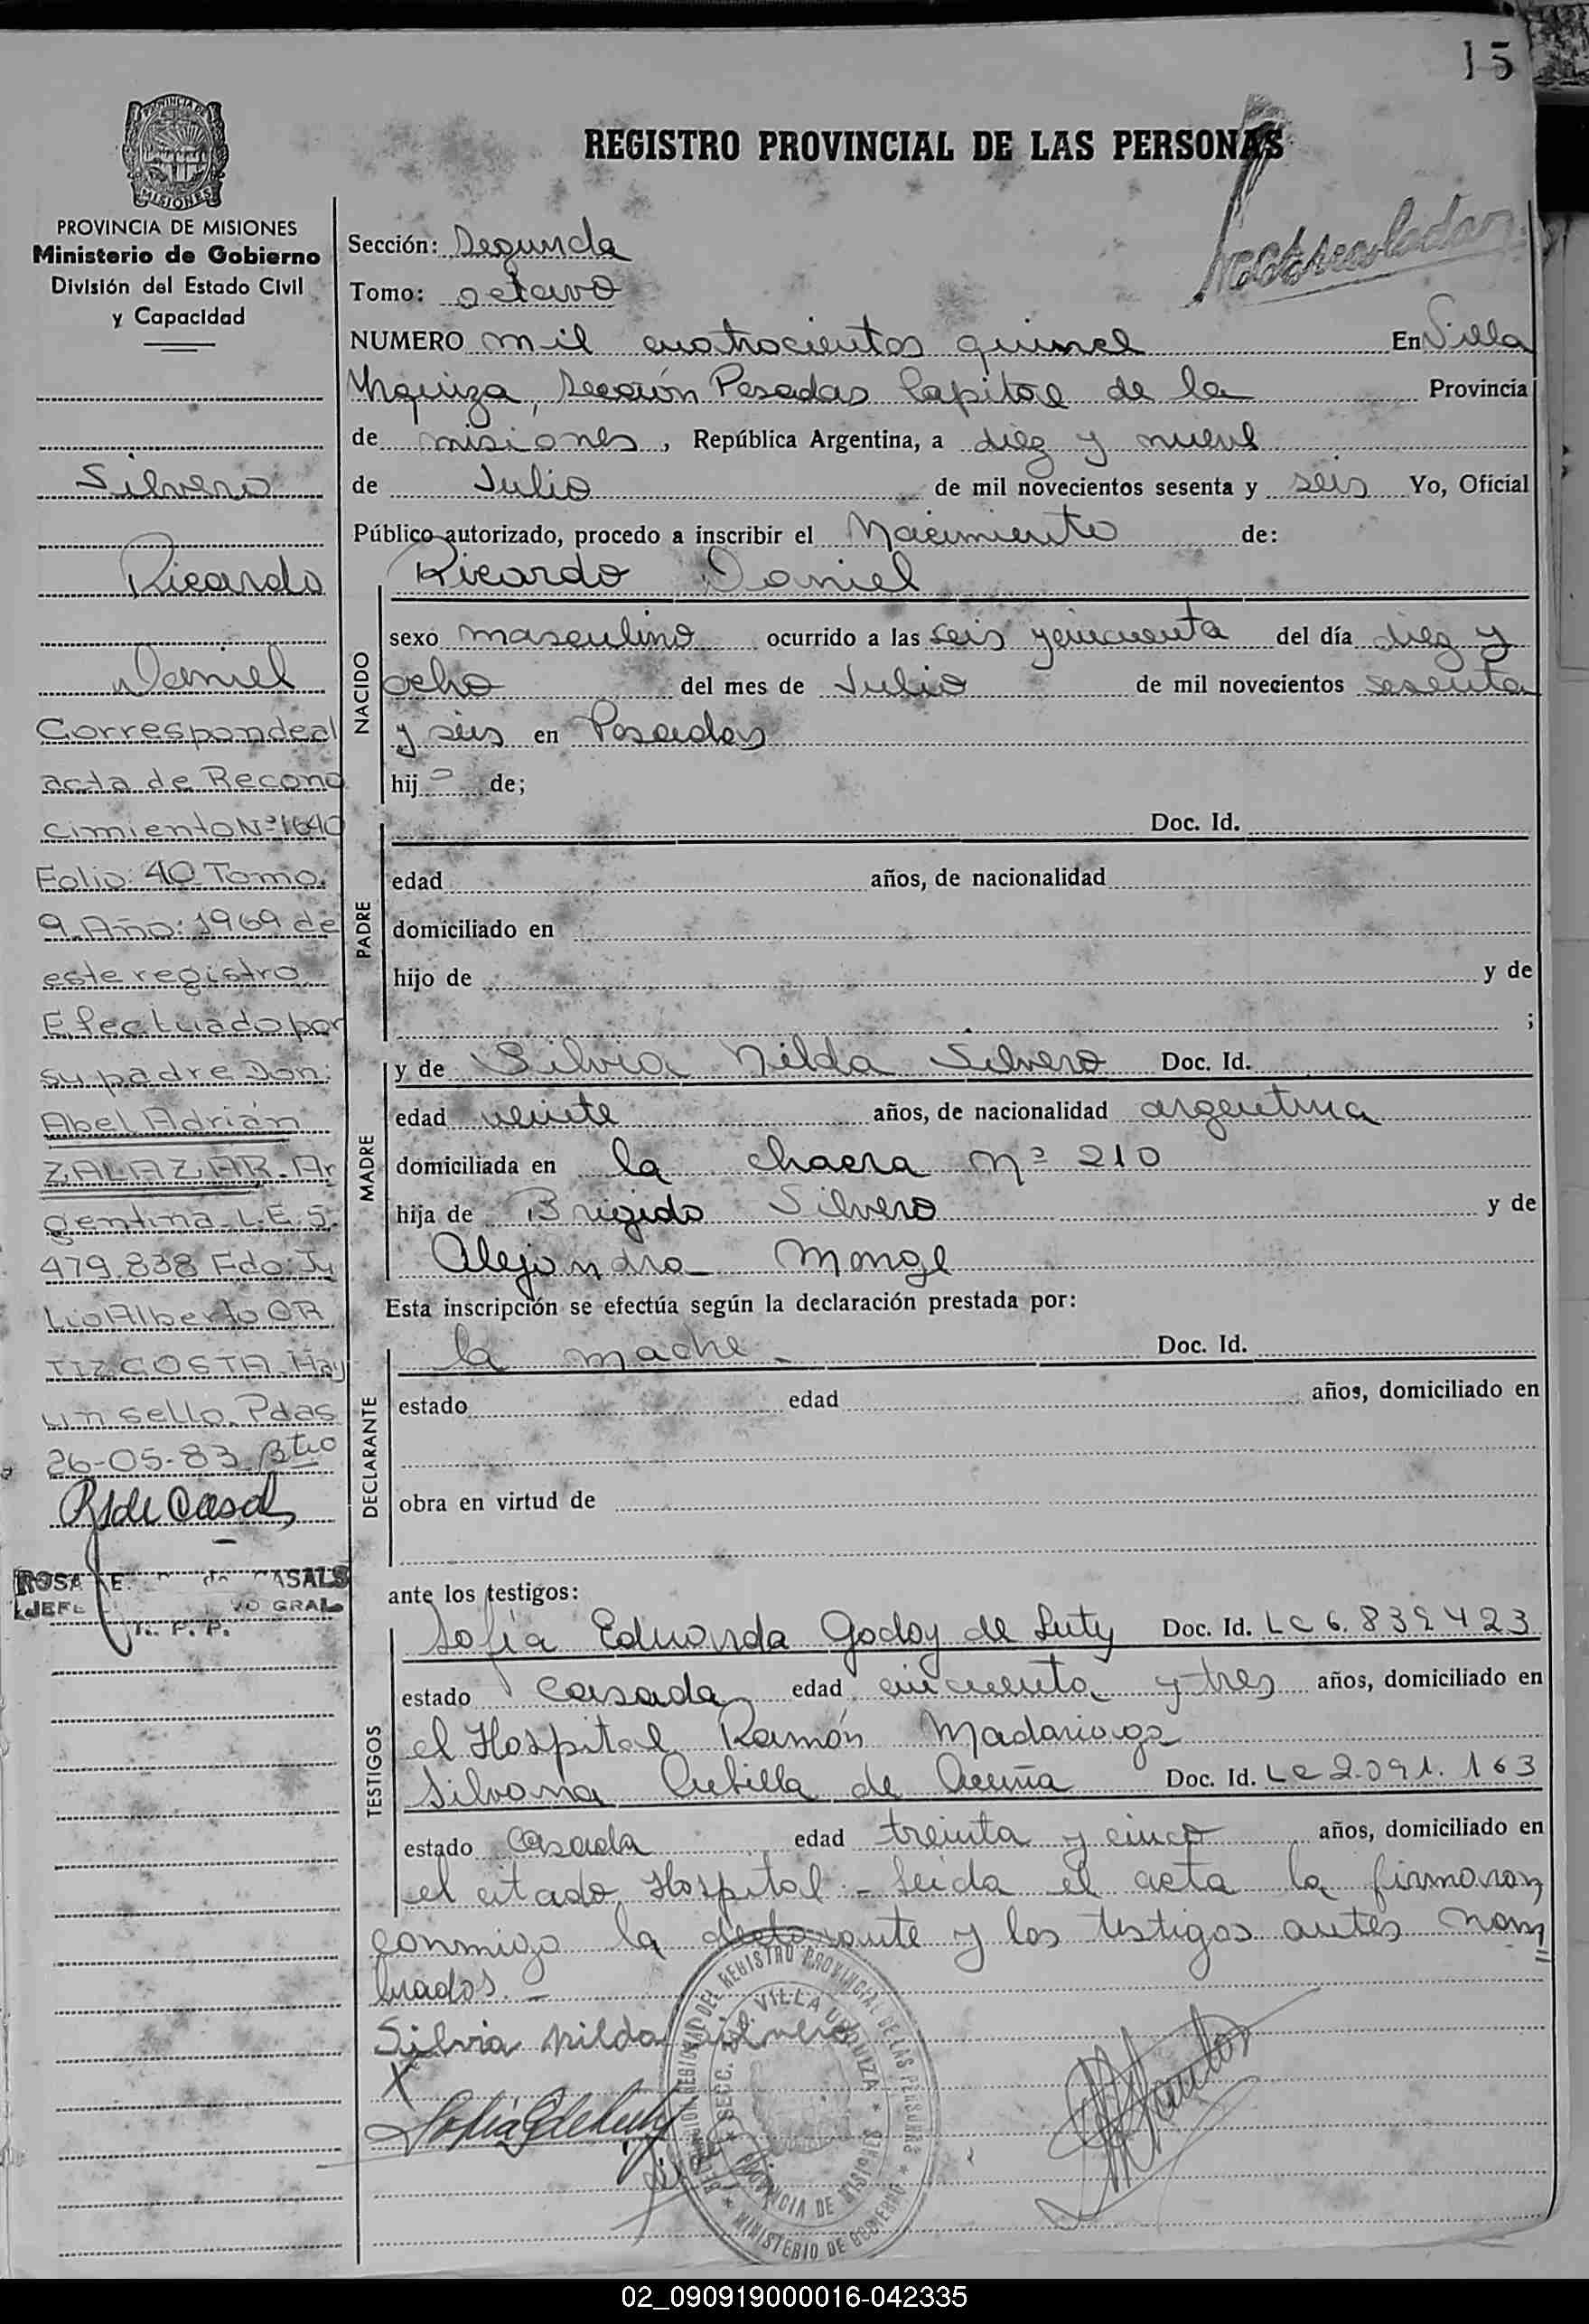 15
PROVINCIA DE
MISIONES
PROVINCIA DE MISIONES
Ministerio de Gobierno
División del Estado Civil
y Capacidad
Silvero
Ricardo
Daniel
Corresponde al
acta de Recono
cimiento Nº 1640
Folio: 40 Tomo:
9. Año: 1969 de
este registro
Efectuado por
su padre Don:
Abel Adrián
ZALAZAR. Ar
gentina L.E. 5.
479.838 Fdo: Ju
lio Alberto OR
TIZ COSTA. Hay
un sello. Pdas
26-05-83
ROSA CASALS
JEFE GRAL
R. P. P.
REGISTRO PROVINCIAL DE LAS PERSONAS
Sección: Segunda
Tomo: octavo
NUMERO mil cuatrocientos quince En Villa
Urquiza, Sección Posadas Capital de la Provincia
de misiones, República Argentina, a diez y nueve
de Julio de mil novecientos sesenta y seis Yo, Oficial
Público autorizado, procedo a inscribir el Nacimiento de:
NACIDO
Ricardo Daniel
sexo masculino ocurrido a las seis y cincuenta del día diez y
ocho del mes de Julio de mil novecientos sesenta
y seis en Posadas
hijo de;
PADRE
Doc. Id.
edad años, de nacionalidad
domiciliado en
hijo de y de
;
MADRE
y de Silvia Nilda Silvero Doc. Id.
edad veinte años, de nacionalidad argentina
domiciliada en la chacra Nº 210
hija de Brigido Silvero y de
Alejandra Monge
Esta inscripción se efectúa según la declaración prestada por:
DECLARANTE
la madre - Doc. Id.
estado edad años, domiciliado en
obra en virtud de
ante los testigos:
TESTIGOS
Sofía Eduarda Godoy de Luty Doc. Id. LC 6.832423
estado Casada edad cincuenta y tres años, domiciliado en
el Hospital Ramón Madariaga
Silvana Cubilla de Acuña Doc. Id. LC 2.091.163
estado Casada edad treinta y cinco años, domiciliado en
el citado Hospital - Leida el acta la firmaron
conmigo la declarante y los testigos antes nom
brados. -
Silvia Nilda Silvero
X
DELEGACION REGIONAL DEL REGISTRO PROVINCIAL DE LAS PERSONAS
SECC. VILLA URQUIZA
PROVINCIA DE MISIONES
MINISTERIO DE GOBIERNO
02_090919000016-042335